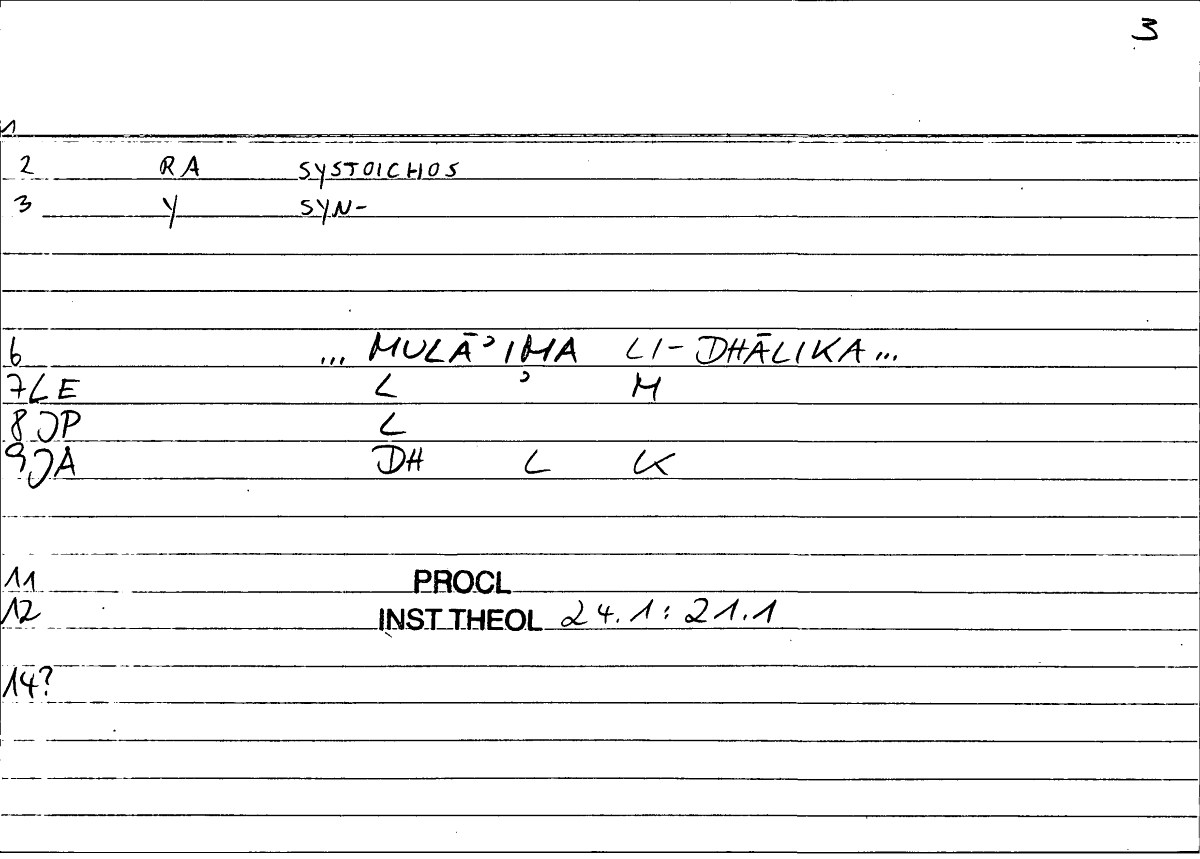 3
1
2 RA SYSTOICHOS
3 Y SYN-
6 ... MULĀʾIMA LI-DHĀLIKA...
7 LE L ʾ M
8 JP L
9 JA DH L K
11 PROCL
12 INST THEOL 24.1:21.1
14?